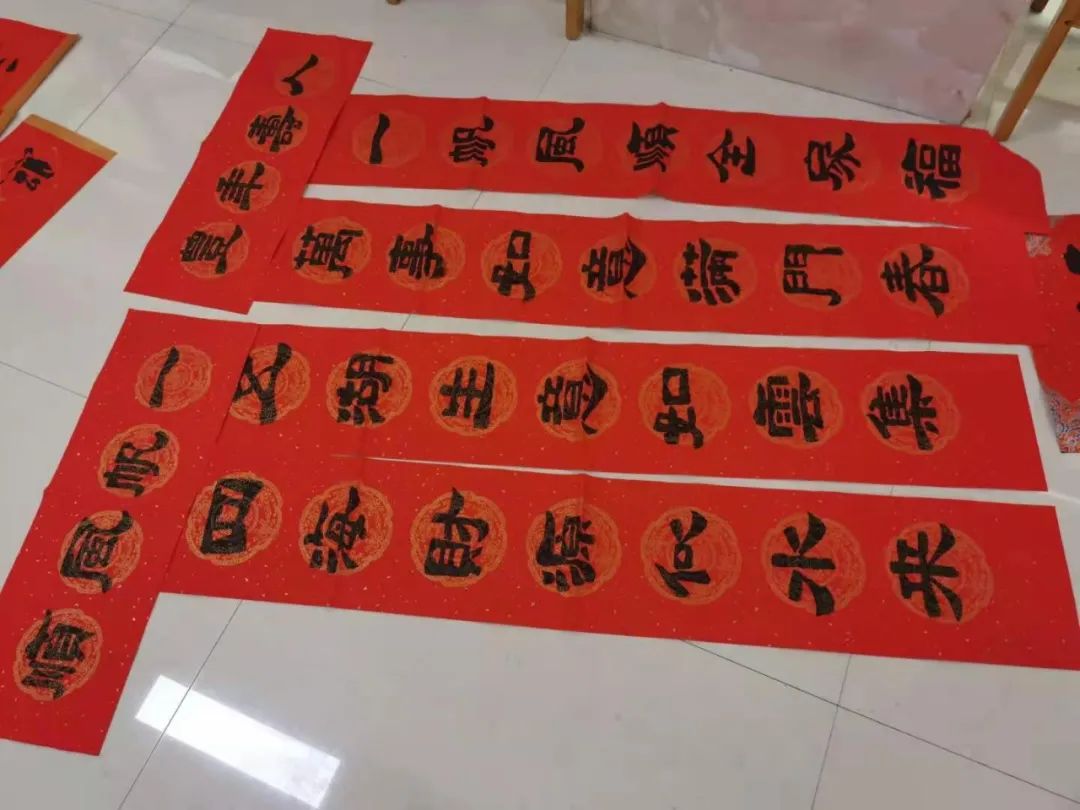 人壽年豊
一帆風順全家福
萬事如意滿門春
一帆風順
五湖生意如雲集
四海財源似水来